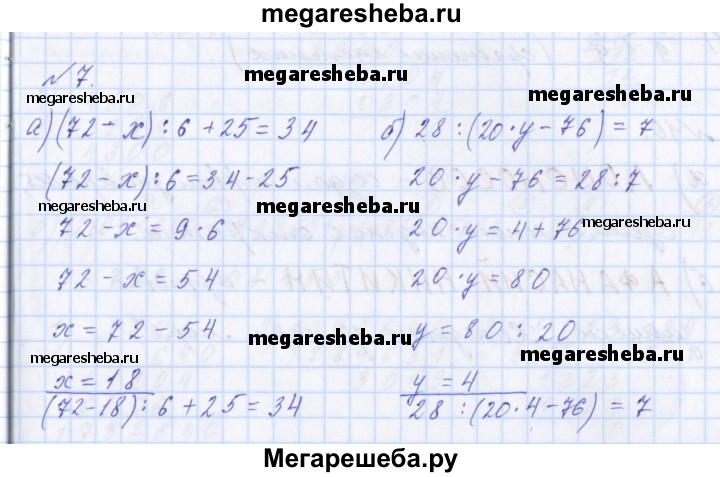 megaresheba.ru
№7. megaresheba.ru
megaresheba.ru megaresheba.ru
а) (72 - x) : 6 + 25 = 34 б) 28 : (20 · y - 76) = 7
(72 - x) : 6 = 34 - 25 20 · y - 76 = 28 : 7
megaresheba.ru megaresheba.ru
72 - x = 9 · 6 20 · y = 4 + 76 megaresheba.ru
72 - x = 54 20 · y = 80
x = 72 - 54 y = 80 : 20
megaresheba.ru megaresheba.ru megaresheba.ru
x = 18 y = 4
(72-18) : 6 + 25 = 34 28 : (20 · 4 - 76) = 7
Мегарешеба.ру